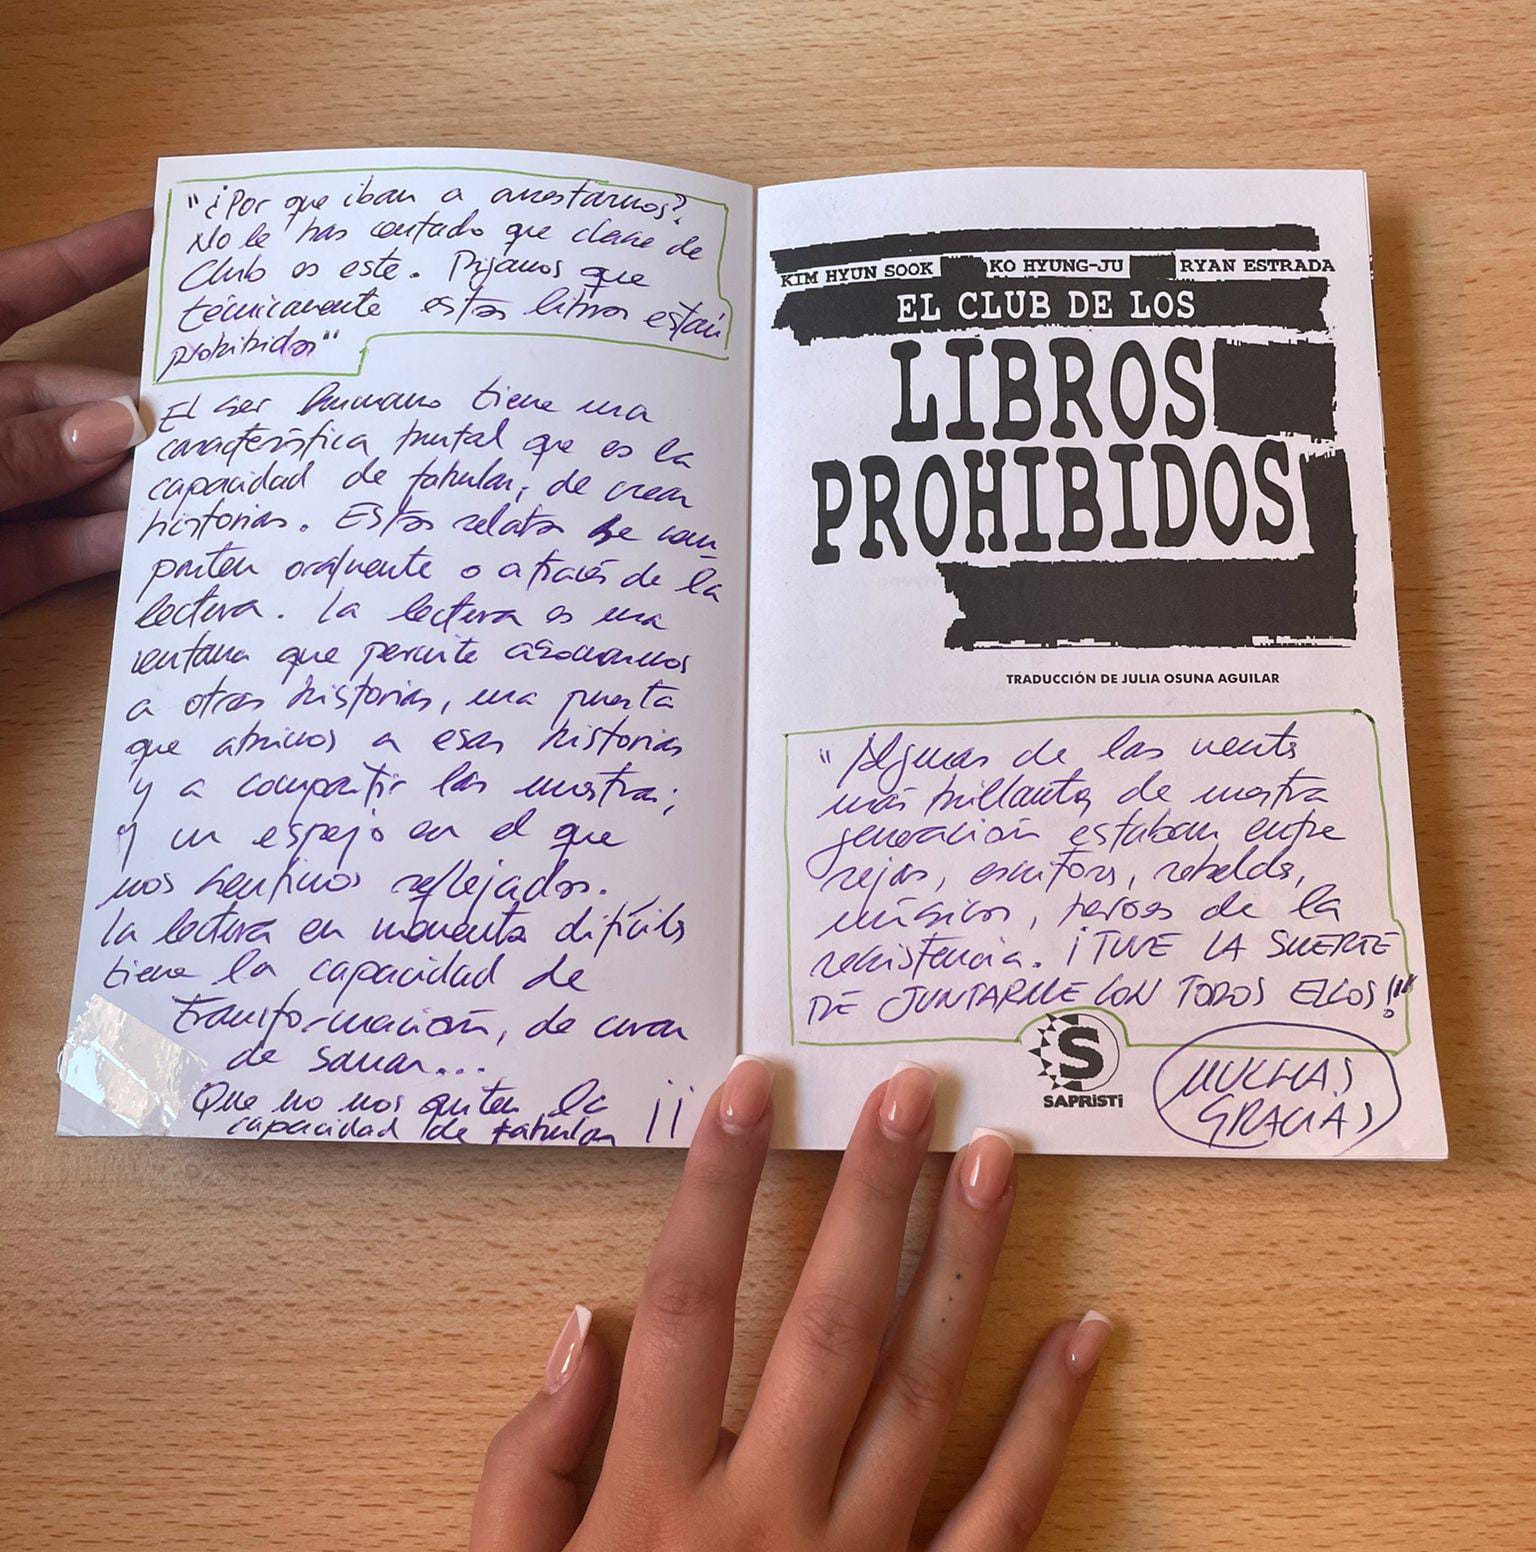 "¿Por que iban a arrestarnos?
No le has contado que clase de
Club es este. Digamos que
técnicamente estos libros están
prohibidos"
El ser humano tiene una
característica brutal que es la
capacidad de fabular, de crear
historias. Estos relatos se com
parten oralmente o a través de la
lectura. La lectura es una
ventana que permite asomarnos
a otras historias, una puerta
que abrimos a esas historias
y a compartir las nuestras;
y un espejo en el que
nos sentimos reflejados.
La lectura en momentos difíciles
tiene la capacidad de
transformación, de curar
de sanar...
Que no nos quiten la
capacidad de fabular ¡¡
KIM HYUN SOOK KO HYUNG-JU RYAN ESTRADA
EL CLUB DE LOS
LIBROS
PROHIBIDOS
TRADUCCIÓN DE JULIA OSUNA AGUILAR
"Algunas de las mentes
más brillantes de nuestra
generación estaban entre
rejas, escritores, rebeldes,
músicos, héroes de la
resistencia. ¡TUVE LA SUERTE
DE JUNTARME CON TODOS ELLOS!"
S
SAPRISTI
MUCHAS
GRACIAS